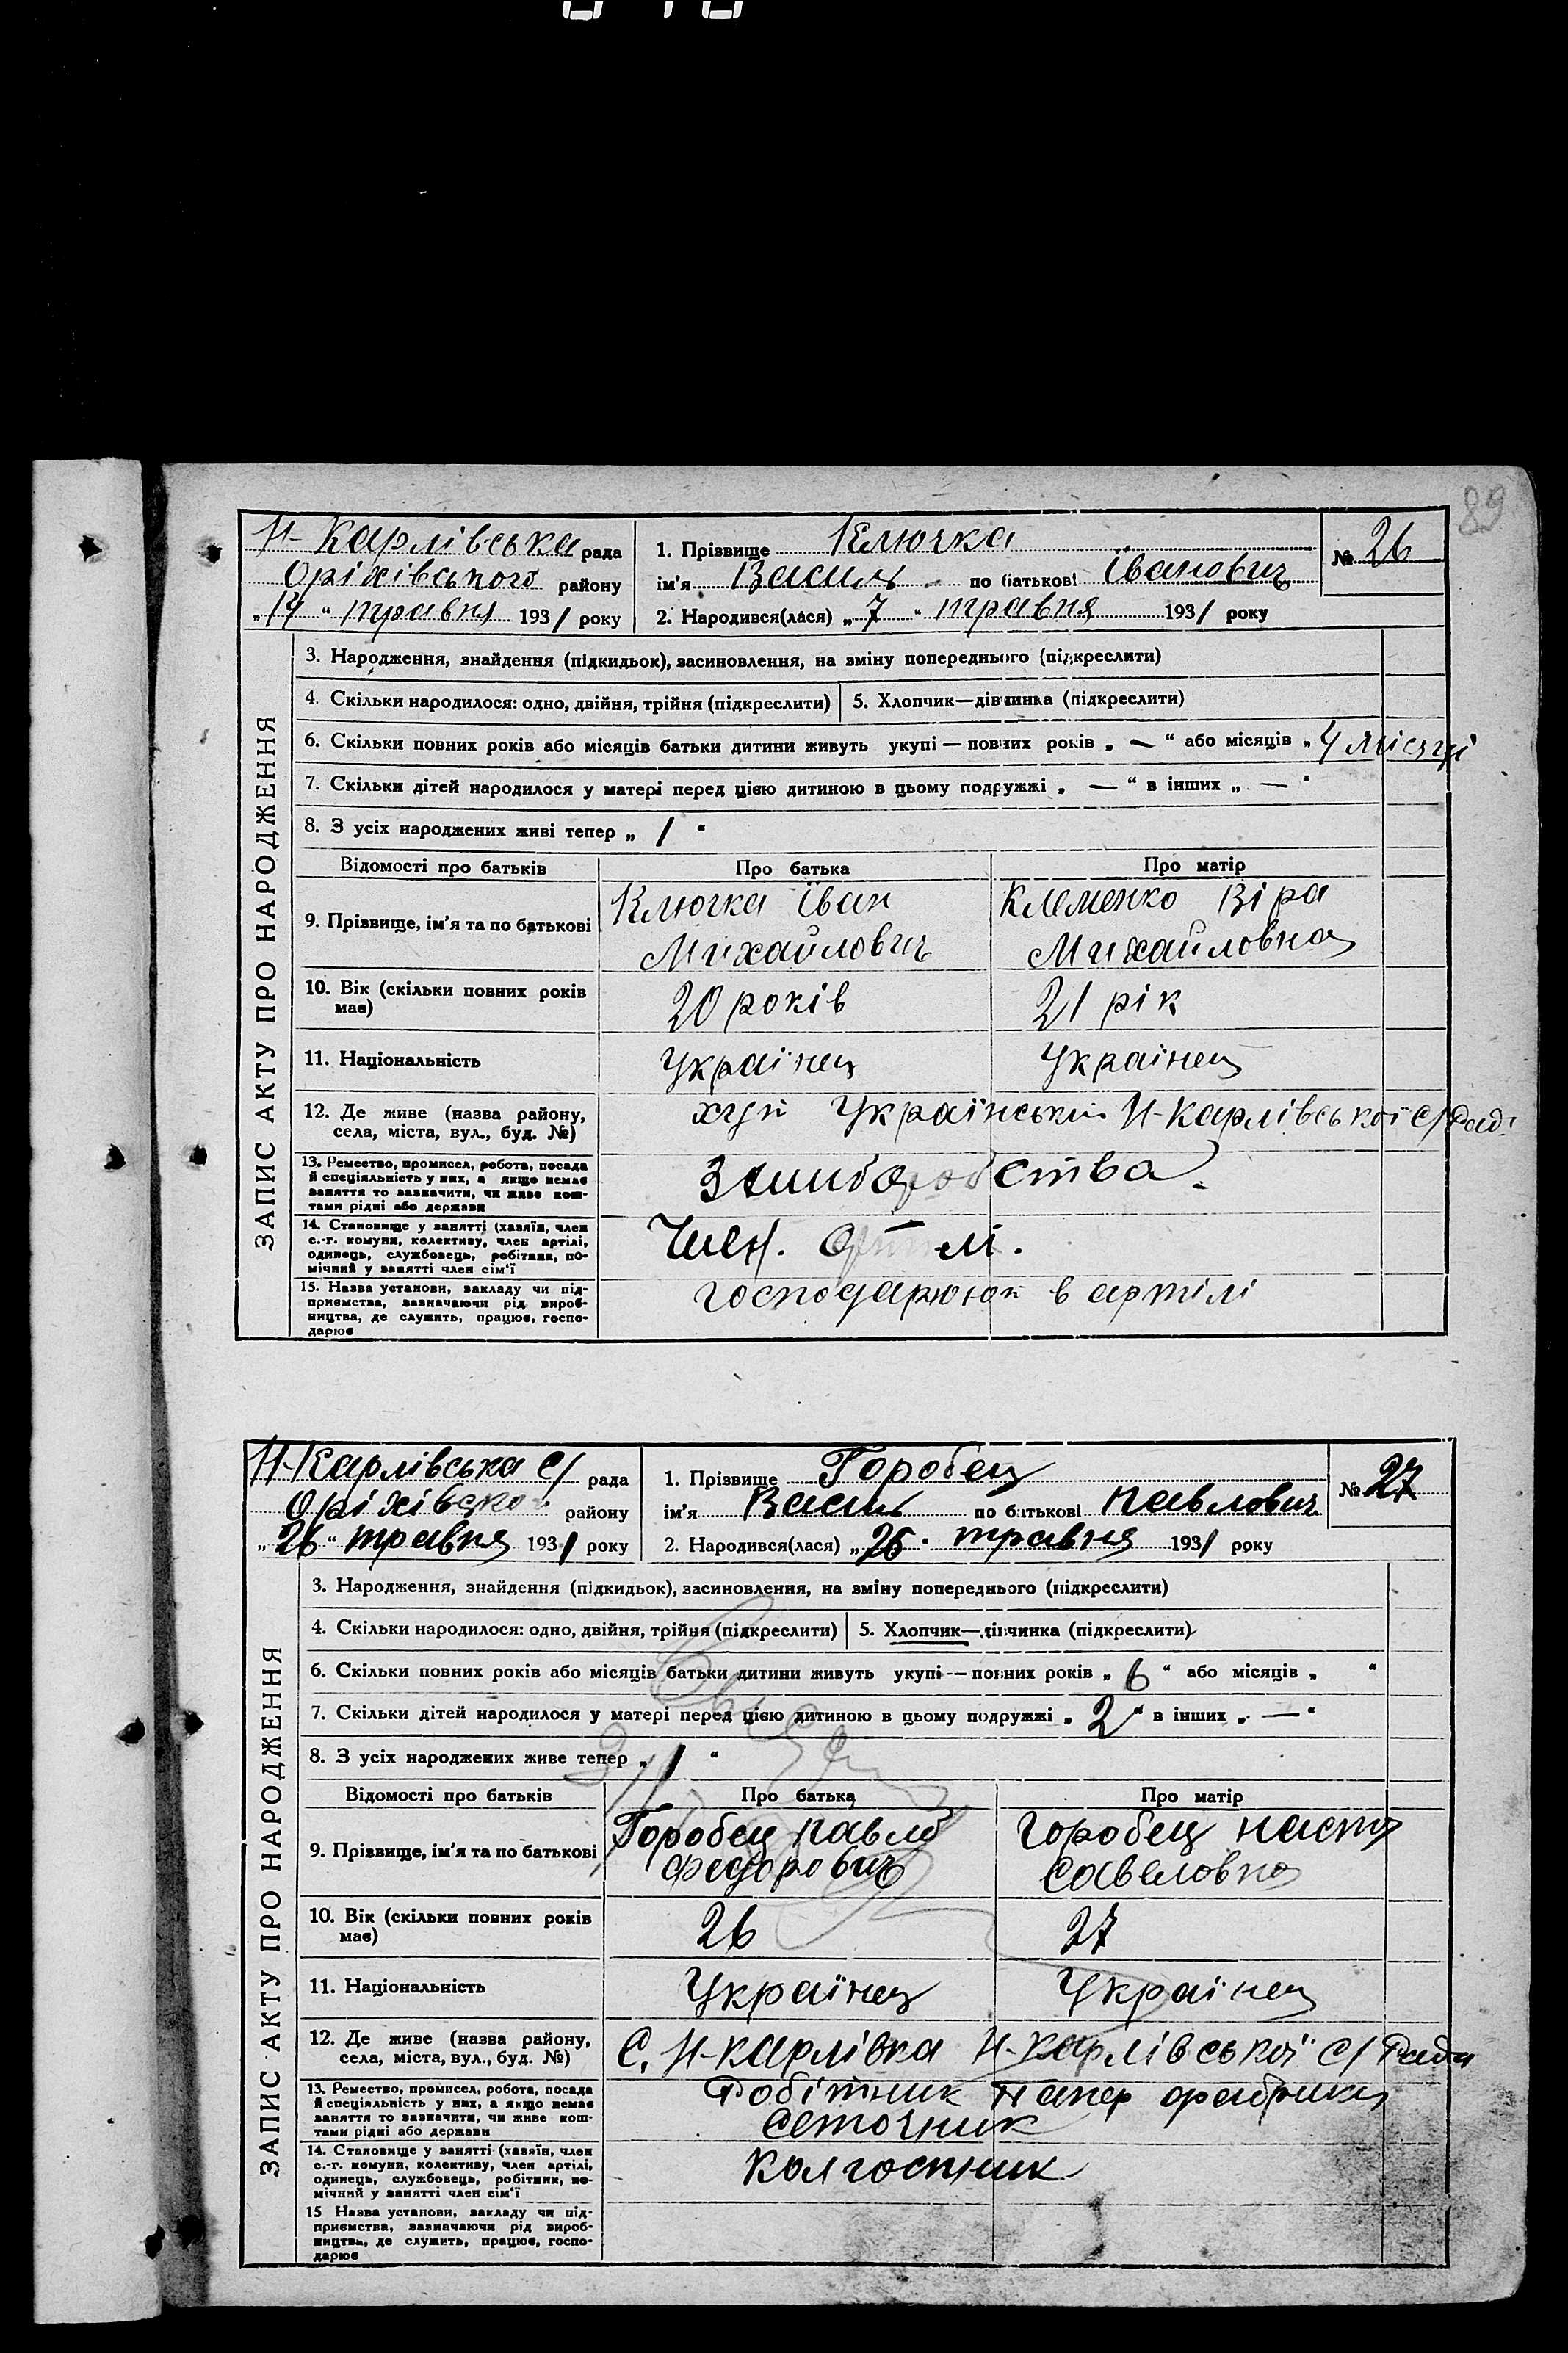 89
Н-Карлівська рада
Оріхівського району
„19“ травня 1931 року
1. Прізвище Ключка
ім'я Василь по батькові Їванович
2. Народився(лася) „7“ травня 1931 року
№ 26
ЗАПИС АКТУ ПРО НАРОДЖЕННЯ
3. Народження, знайдення (підкидьок), засиновлення, на зміну попереднього (підкреслити)
4. Скільки народилося: одно, двійня, трійня (підкреслити) 5. Хлопчик—дівчинка (підкреслити)
6. Скільки повних років або місяців батьки дитини живуть укупі — повних років „ — “ або місяців „ 4 місяці
7. Скільки дітей народилося у матері перед цією дитиною в цьому подружжі „ — “ в інших „ — “
8. З усіх народжених живі тепер „ 1 “
Відомості про батьків Про батька Про матір
9. Прізвище, ім'я та по батькові
Ключка Їван
Михайлович
Клеменко Віра
Михайловна
10. Вік (скільки повних років
має)
20 років
21 рік
11. Національність Українец Українец
12. Де живе (назва району,
села, міста, вул., буд. №)
хут Український Н-Карлівської С/Рад
13. Ремество, промисел, робота, посада
й спеціяльність у них, а якщо немає
заняття то зазначити, чи живе кош-
тами рідні або держави
14. Становище у занятті (хазяїн, член
с.-г. комуни, колективу, член артілі,
одинець, службовець, робітник, по-
мічний у занятті член сім'ї
Член. артілі.
15. Назва установи, закладу чи під-
приємства, зазначаючи рід вироб-
ництва, де служить, працює, госпо-
дарює
в артілі
Н-Карлівська С/ рада
району
„26“ травня 1931 року
1. Прізвище Горобец
ім'я Василь по батькові Павлович
2. Народився(лася) „25“ травня 1931 року
№ 27
ЗАПИС АКТУ ПРО НАРОДЖЕННЯ
3. Народження, знайдення (підкидьок), засиновлення, на зміну попереднього (підкреслити)
4. Скільки народилося: одно, двійня, трійня (підкреслити) 5. Хлопчик—дівчинка (підкреслити)
6. Скільки повних років або місяців батьки дитини живуть укупі — повних років „ 6 “ або місяців „ “
7. Скільки дітей народилося у матері перед цією дитиною в цьому подружжі „ 2 “ в інших „ — “
8. З усіх народжених живе тепер „ 1 “
Відомості про батьків Про батька Про матір
9. Прізвище, ім'я та по батькові
Горобец Павло
Федорович
Горобец Настя
Савеловна
10. Вік (скільки повних років
має)
26
27
11. Національність Українец Українец
12. Де живе (назва району,
села, міста, вул., буд. №)
С. Н-Карлівка Н-Карлівської С/Ради
13. Ремество, промисел, робота, посада
й спеціяльність у них, а якщо немає
заняття то зазначити, чи живе кош-
тами рідні або держави
Робітник Папер фабрики
Сеточник
14. Становище у занятті (хазяїн, член
с.-г. комуни, колективу, член артілі,
одинець, службовець, робітник, по-
мічний у занятті член сім'ї
Колгоспник
15 Назва установи, закладу чи під-
приємства, зазначаючи рід вироб-
ництва, де служить, працює, госпо-
дарює